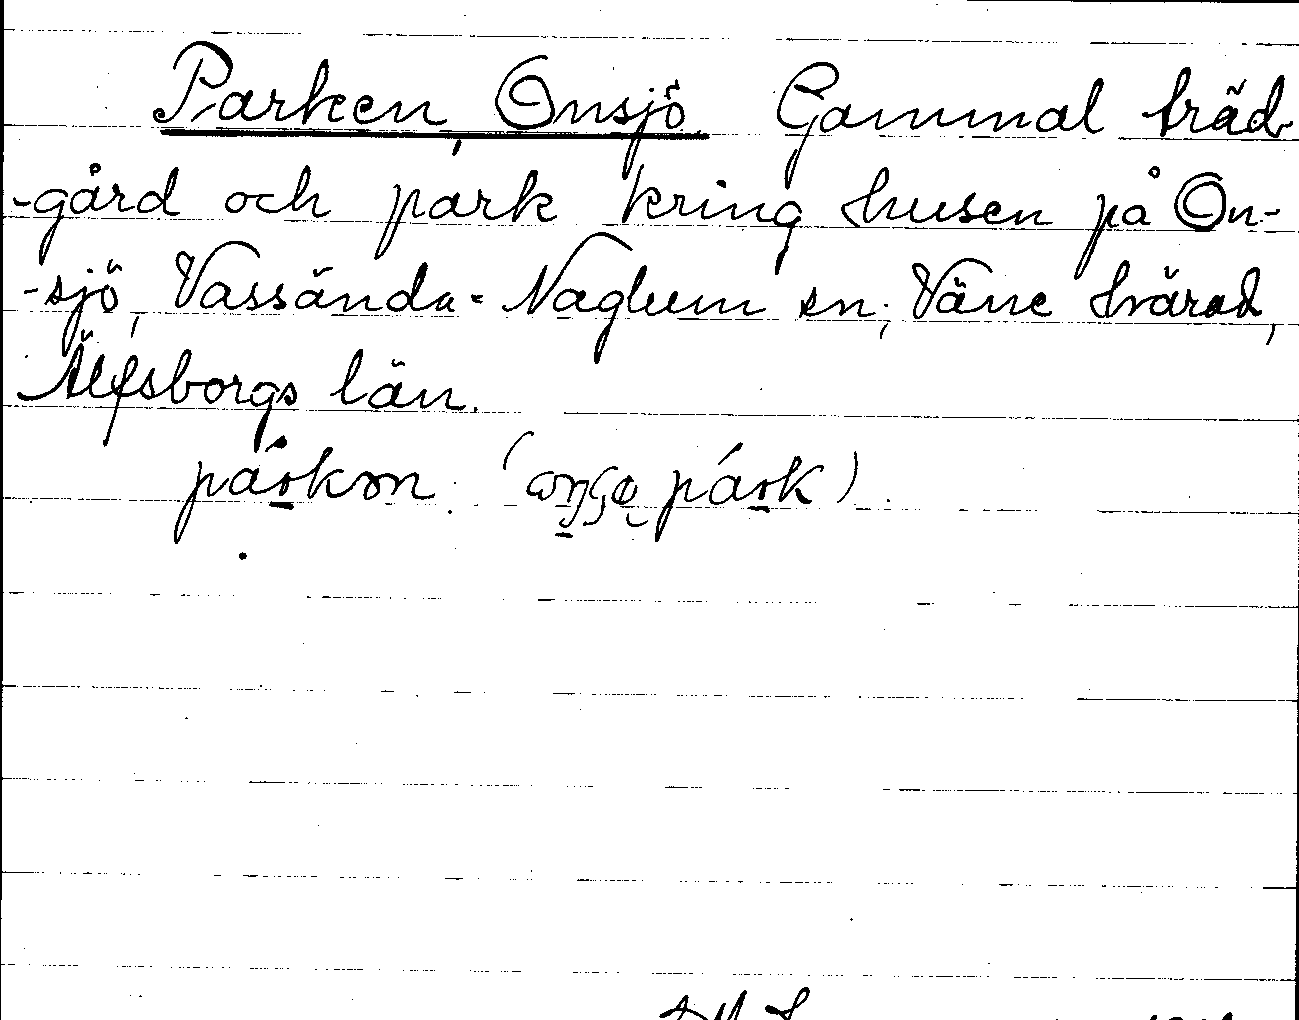 Parken, Onsjö Gammal träd-
-gård och park kring husen på On-
-sjö, Vassända-Naglum sn; Väne härad,
Älfsborgs län.